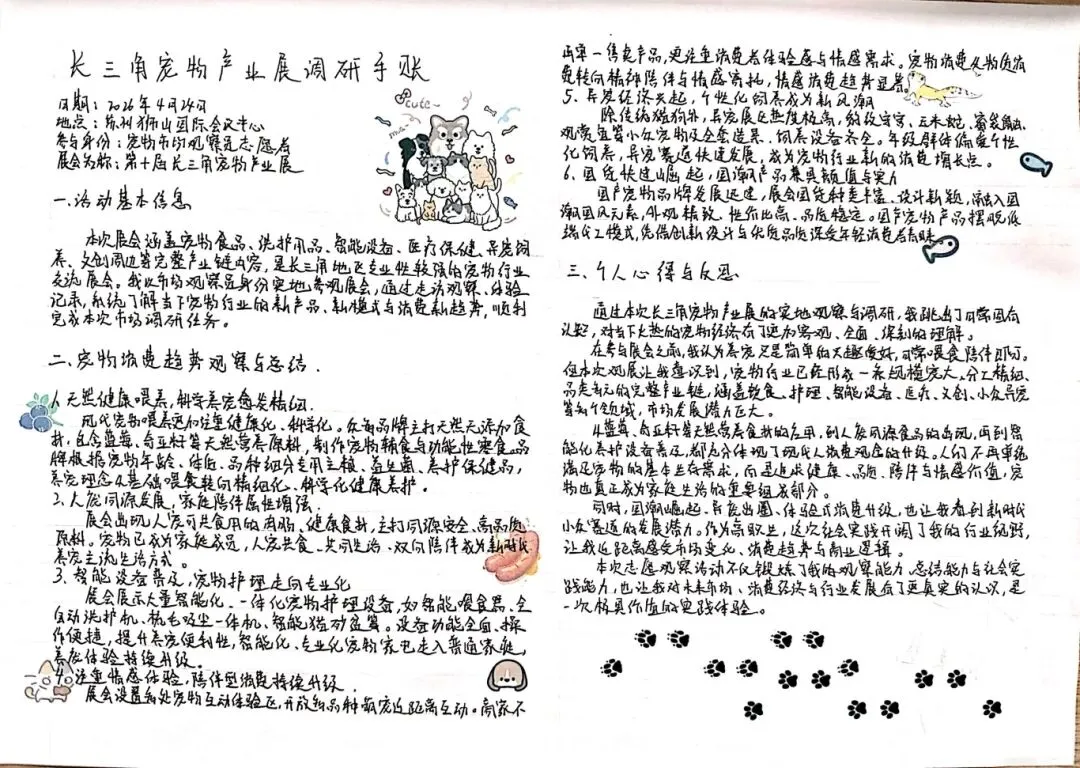 长三角宠物产业展调研手账
日期：2026年4月24日
地点：苏州狮山国际会议中心
参与身份：宠物市场观察员志愿者
展会名称：第十届长三角宠物产业展
cute~
一.活动基本信息
本次展会涵盖宠物食品、洗护用品、智能设备、医疗保健、异宠饲
养、文创周边等完整产业链内容，是长三角地区专业性较强的宠物行业
交流展会。我以市场观察员身份实地参观展会，通过走访观察、体验
记录，系统了解当下宠物行业的新产品、新模式与消费新趋势，顺利
完成本次市场调研任务。
二.宠物消费趋势观察与总结.
1.天然健康喂养，科学养宠愈发精细.
现代宠物喂养更加注重健康化、科学化。众多品牌主打天然无添加食
材，包含蓝莓、奇亚籽等天然营养原料，制作宠物辅食与功能性零食品
牌根据宠物年龄、体质、品种细分专用主粮、益生菌、养护保健品，
养宠理念从基础喂食转向精细化、科学化健康养护.
2.人宠同源发展，家庭陪伴属性增强.
展会出现人宠可共食用的肉肠、健康食材，主打同源安全、高品质
原料。宠物已成为家庭成员，人宠共食、共同生活、双向陪伴成为新时代
养宠主流生活方式。
3.智能设备普及，宠物护理走向专业化
展会展示大量智能化、一体化宠物护理设备，如智能喂食器、全
自动洗护机、梳毛吸尘一体机、智能猫砂盆等。设备功能全面、操
作便捷，提升养宠便利性，智能化、专业化宠物家电走入普通家庭，
养宠体验持续升级。
4.注重情感体验，陪伴型消费持续升级.
展会设置多处宠物互动体验区，开放多品种萌宠近距离互动。商家不
再单一售卖产品，更注重消费者体验感与情感需求。宠物消费从物质消
费转向精神陪伴与情感寄托，情感消费趋势显著。
5.异宠经济兴起，个性化饲养成为新风潮
除传统猫狗外，异宠展区热度极高，豹纹守宫、玉米蛇、蜜袋鼯、
观赏鱼等小众宠物及全套造景、饲养设备齐全。年轻群体偏爱个性
化饲养，异宠赛道快速发展，成为宠物行业新的消费增长点。
6.国货快速崛起，国潮产品兼具颜值与实力
国产宠物品牌发展迅速，展会国货种类丰富、设计新颖，融入国
潮国风元素，外观精致、性价比高、品质稳定。国产宠物产品摆脱低
端代工模式，凭借创新设计与优质品质深受年轻消费者青睐。
三.个人心得与反思
通过本次长三角宠物产业展的实地观察与调研，我跳出了日常固有
认知，对当下火热的宠物经济有了更加客观、全面、深刻的理解。
在参与展会之前，我认为养宠只是简单的兴趣爱好，日常喂食陪伴即可。
但本次观展让我意识到，宠物行业已经形成一条规模宠大、分工精细、
品类多元的完整产业链，涵盖饮食、护理、智能设备、医疗、文创、小众异宠
等多个领域，市场发展潜力巨大。
从蓝莓、奇亚籽等天然营养食材的应用，到人宠同源食品的出现，再到智
能化养护设备普及，都充分体现了现代人消费观念的升级。人们不再单纯
满足宠物的基本生存需求，而是追求健康、品质、陪伴与情感价值，宠
物也真正成为家庭生活的重要组成部分。
同时，国潮崛起、异宠出圈、体验式消费升级，也让我看到新时代
小众赛道的发展潜力。作为高职生，这次社会实践开阔了我的行业视野，
让我近距离感受市场变化、消费趋势与商业逻辑。
本次志愿观察活动不仅锻炼了我的观察能力、总结能力与社会实
践能力，也让我对未来市场、消费经济与行业发展有了更真实的认识，是
一次极具价值的实践体验。